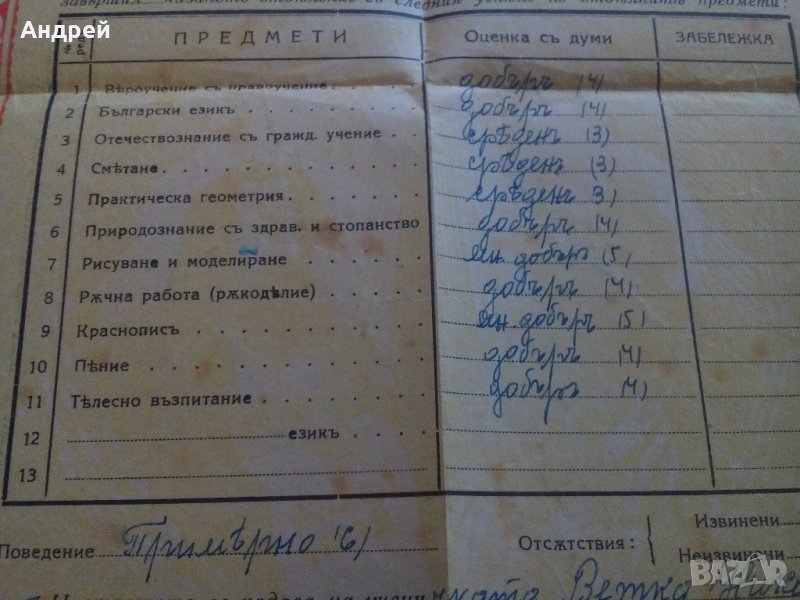 Андрей
завършил казаното отдѣление съ следния успѣхъ по отдѣлнитѣ предмети:
№ ред. ПРЕДМЕТИ Оценка съ думи ЗАБЕЛЕЖКА
1 Вѣроучение съ нравоучение добъръ (4)
2 Български езикъ добъръ (4)
3 Отечествознание съ гражд. учение срѣденъ (3)
4 Смѣтане срѣденъ (3)
5 Практическа геометрия срѣденъ 3)
6 Природознание съ здрав. и стопанство добъръ (4)
7 Рисуване и моделиране мн. добъръ (5)
8 Рѫчна работа (рѫкодѣлие) добъръ (4)
9 Краснописъ мн. добъръ (5)
10 Пѣние добъръ (4)
11 Тѣлесно възпитание добъръ (4)
12 езикъ
13
Поведение Примѣрно (6) Отсѫтствия: Извинени
Неизвинени
BAZAR